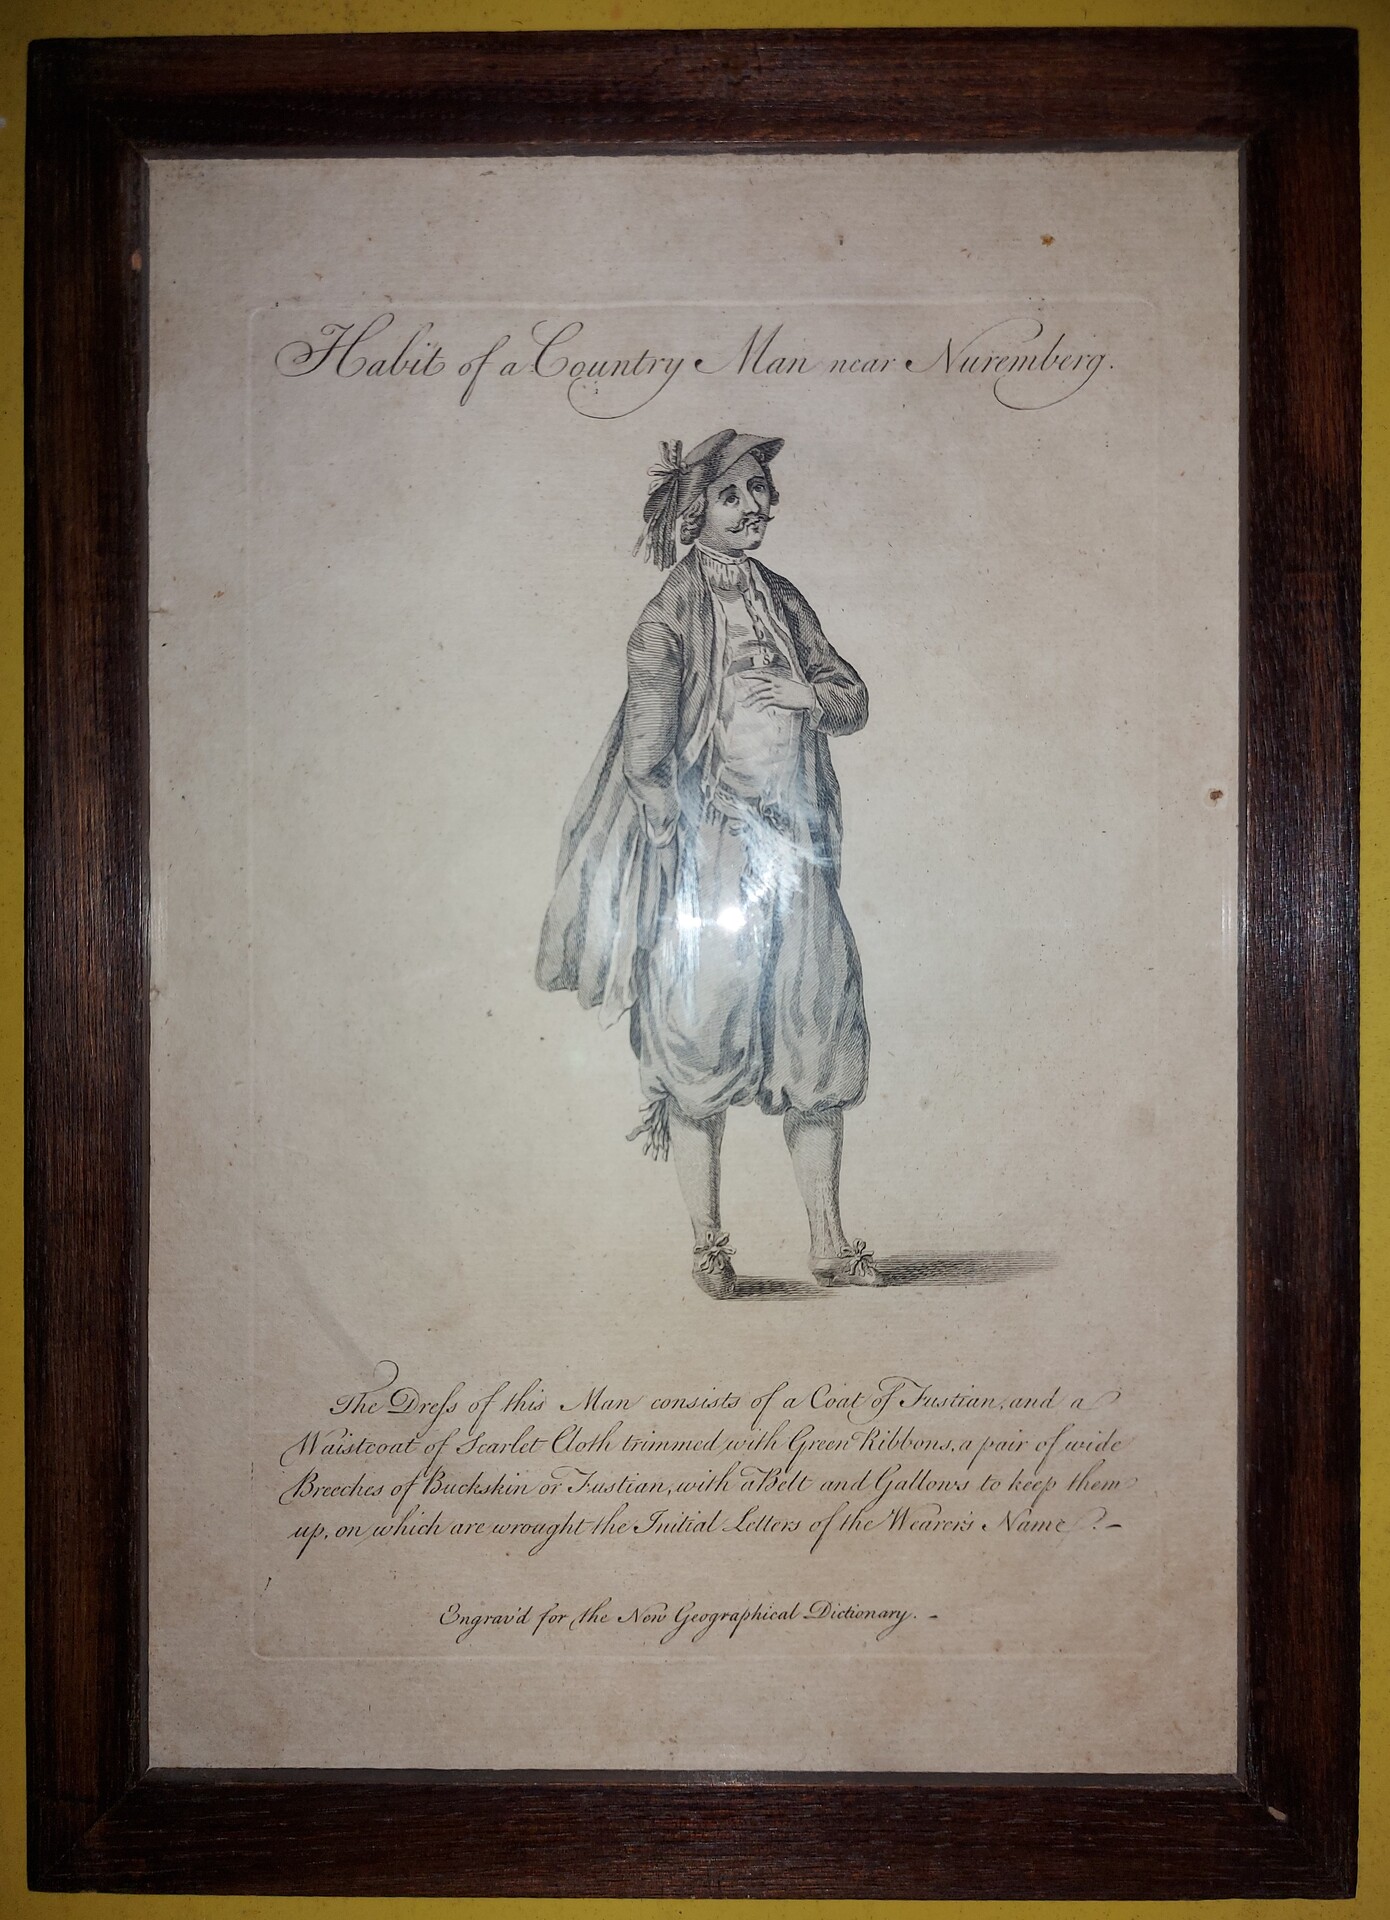 Habit of a Country Man near Nuremberg.
I S
The Dreſs of this Man consists of a Coat of Fustian, and a
Waistcoat of Scarlet Cloth trimmed with Green Ribbons, a pair of wide
Breeches of Buckskin or Fustian, with a Belt and Gallows to keep them
up, on which are wrought the Initial Letters of the Wearer's Name.—
Engrav'd for the New Geographical Dictionary.—